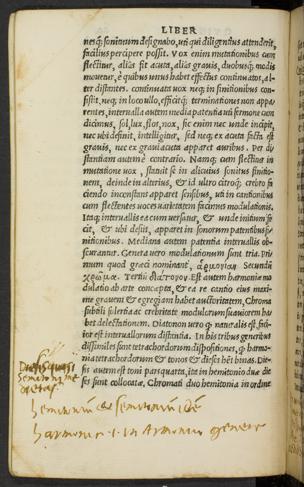 LIBER
nesq; sonituum designabo, uti qui diligentius attenderit,
facilius percipere possit. Vox enim mutationibus cum
flectitur, aliàs fit acuta, aliàs grauis, duobusq; modis
mouetur, è quibus unus habet effectus continuatos, al-
ter distantes. continuata uox neq; in finitionibus con-
sistit, neq; in loco ullo, efficitq; terminationes non appa-
rentes, interualla autem media patentia uti sermone cum
dicimus, sol, lux, flos, nox, sic enim nec unde incipit,
nec ubi desinit, intelligitur, sed neq; ex acuta facta est
grauis, nec ex graui acuta apparet auribus. Per di-
stantiam autem è contrario. Namq; cum flectitur in
mutatione uox, statuit se in alicuius sonitus finitio-
nem, deinde in alterius, & id ultro citroq; crebro fa-
ciendo inconstans apparet sensibus, uti in cantionibus
cum flectentes uoces uarietatem facimus modulationis.
Itaq; interuallis ea cum uersatur, & unde initium fe-
cit, & ubi desiit, apparet in sonorum patentibus fi-
nitionibus. Mediana autem patentia interuallis ob-
scurantur. Genera uero modulationum sunt tria. Pri-
mum quod græci nominant, ἁρμονίαν. Secundū
χρῶμα. Tertiū διάτονον. Est autem harmonia mo
dulatio ab arte concepta, & ea re cantio eius maxi-
me grauem & egregiam habet auctoritatem, Chroma
subtili solertia ac crebritate modulorum suauiorem ha-
bet delectationem. Diatonon uero q; naturalis est, faci-
lior est interuallorum distantia. In his tribus generibus
dissimiles sunt tetrachordorum dispositiones, q; harmo-
nia tetrachordorum & tonos & dieses hēt binas. Die-
sis autem est toni pars quarta, ita in hemitonio duæ die
ses sunt collocatæ, Chromati duo hemitonia in ordine